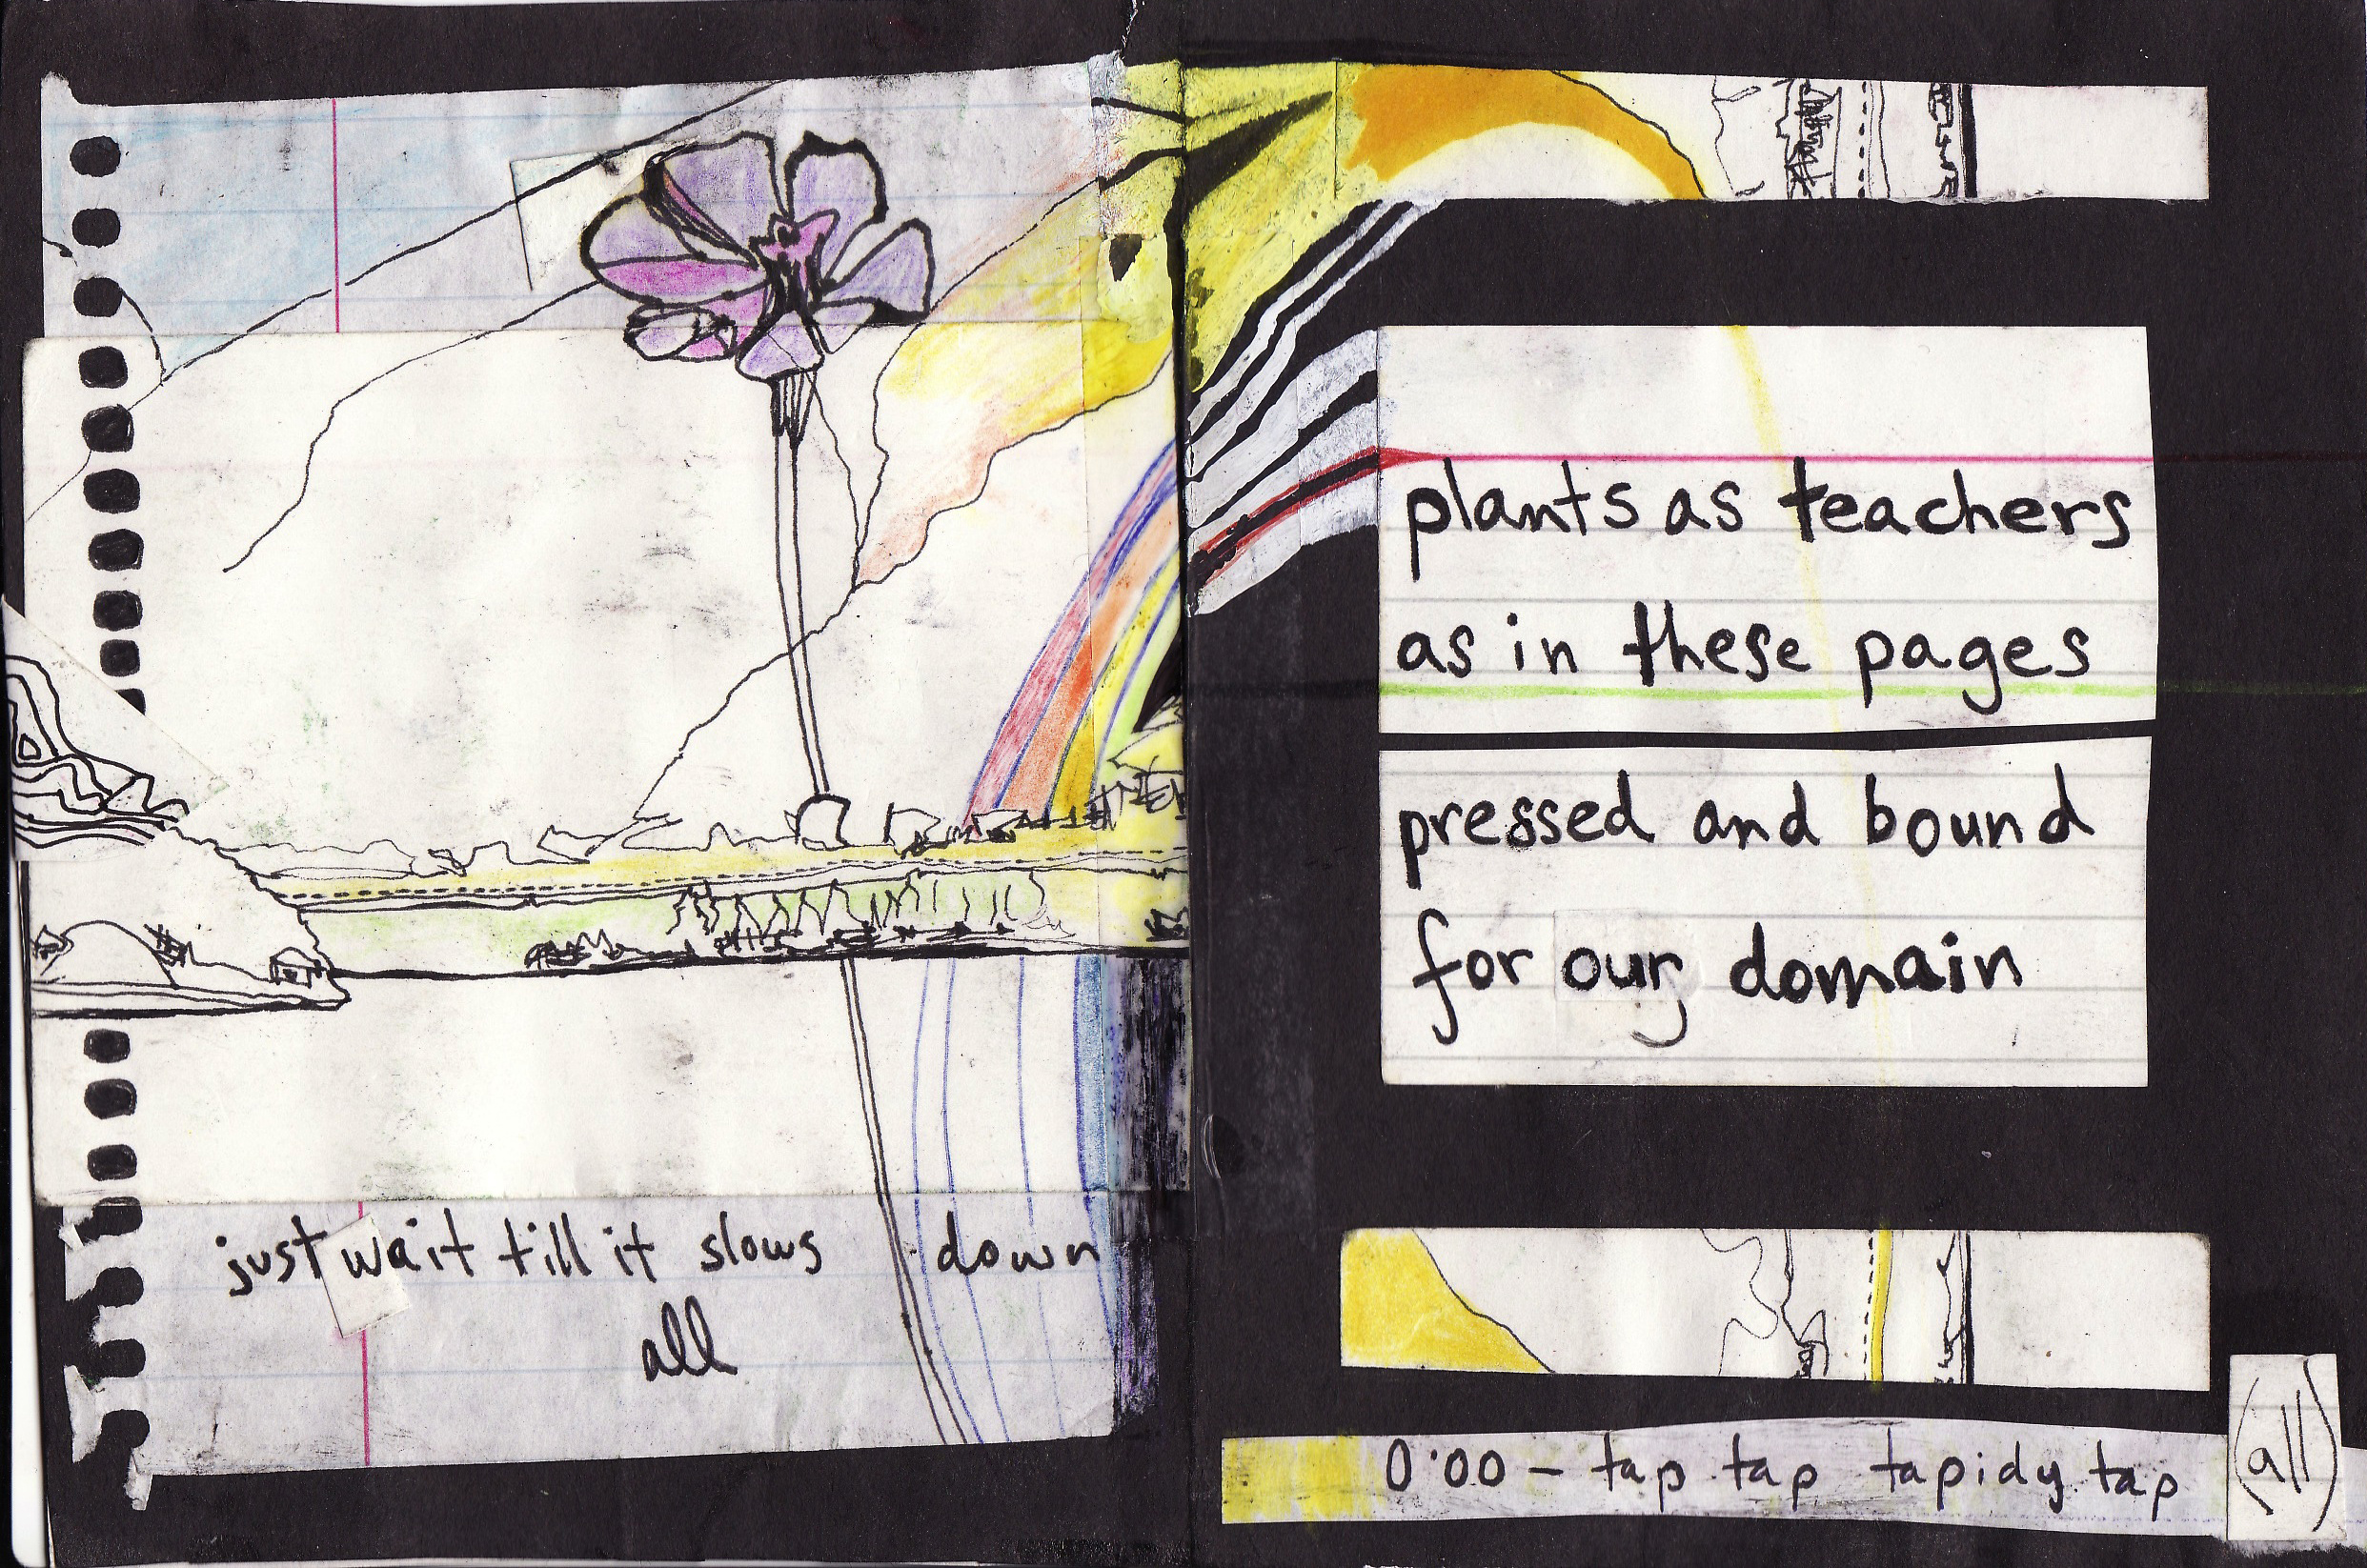 just wait till it slows down
all
plants as teachers
as in these pages
pressed and bound
for our domain
0:00 – tap tap tapidy tap
(all)